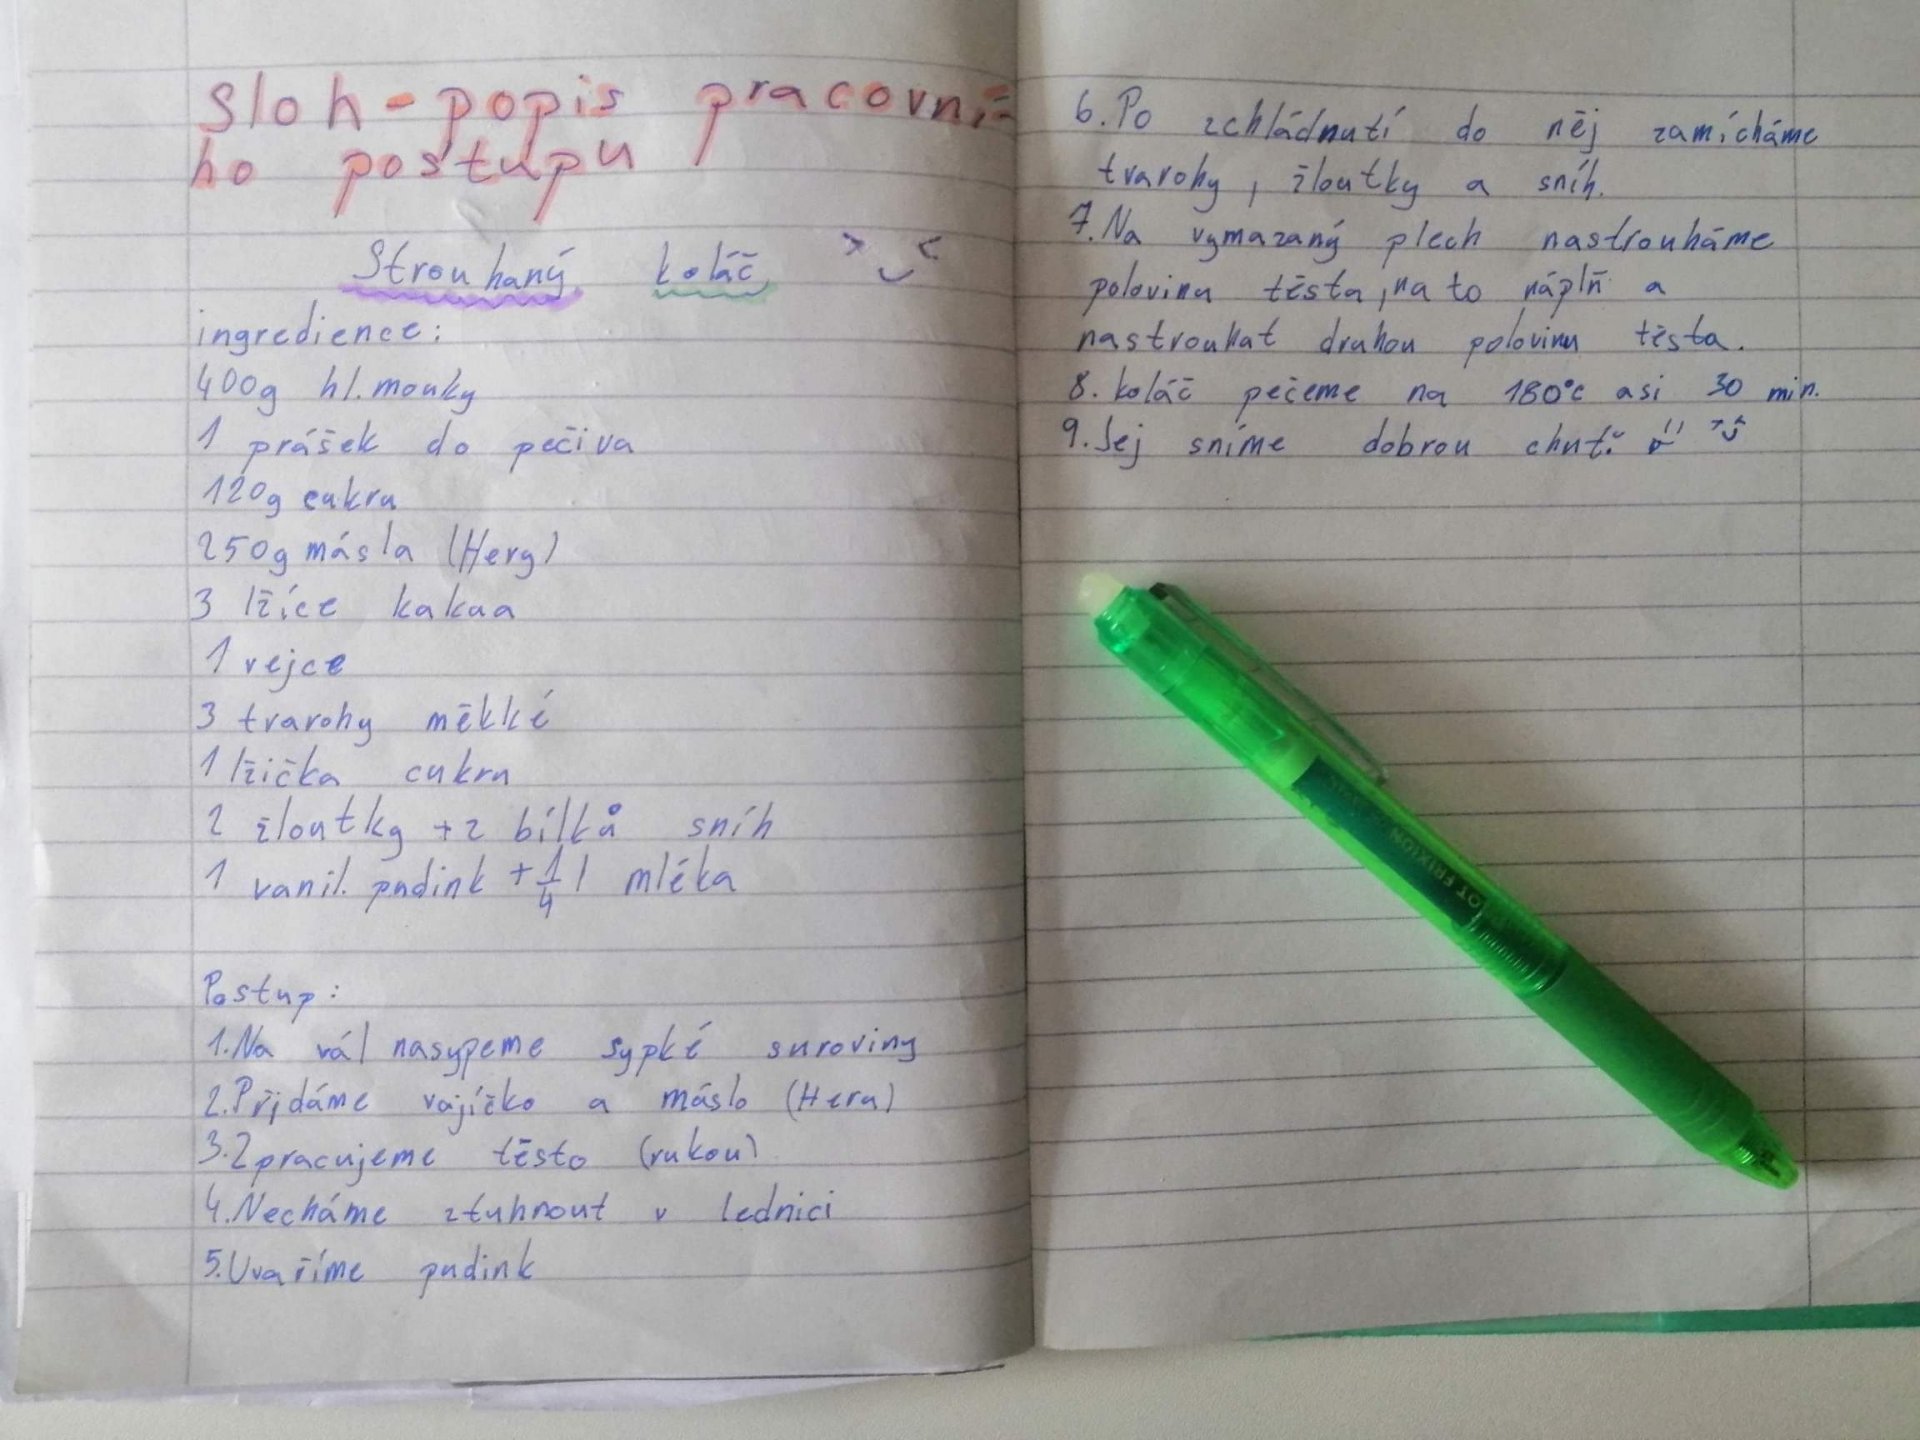 Sloh - popis pracovní-
ho postupu
Strouhaný koláč
ingredience:
400g hl. mouky
1 prášek do pečiva
120g cukru
250g másla (Hery)
3 lžíce kakaa
1 vejce
3 tvarohy měkké
1 lžička cukru
2 žloutky + 2 bílků sníh
1 vanil. pudink + 1/4 l mléka
Postup:
1. Na vál nasypeme sypké suroviny
2. Přidáme vajíčko a máslo (Hera)
3. Zpracujeme těsto (rukou)
4. Necháme ztuhnout v lednici
5. Uvaříme pudink
6. Po zchládnutí do něj zamícháme
tvarohy, žloutky a sníh.
7. Na vymazaný plech nastrouháme
polovinu těsta, na to náplň a
nastrouhat druhou polovinu těsta.
8. koláč pečeme na 180°c asi 30 min.
9. Jej sníme dobrou chuť.
PILOT FRIXION